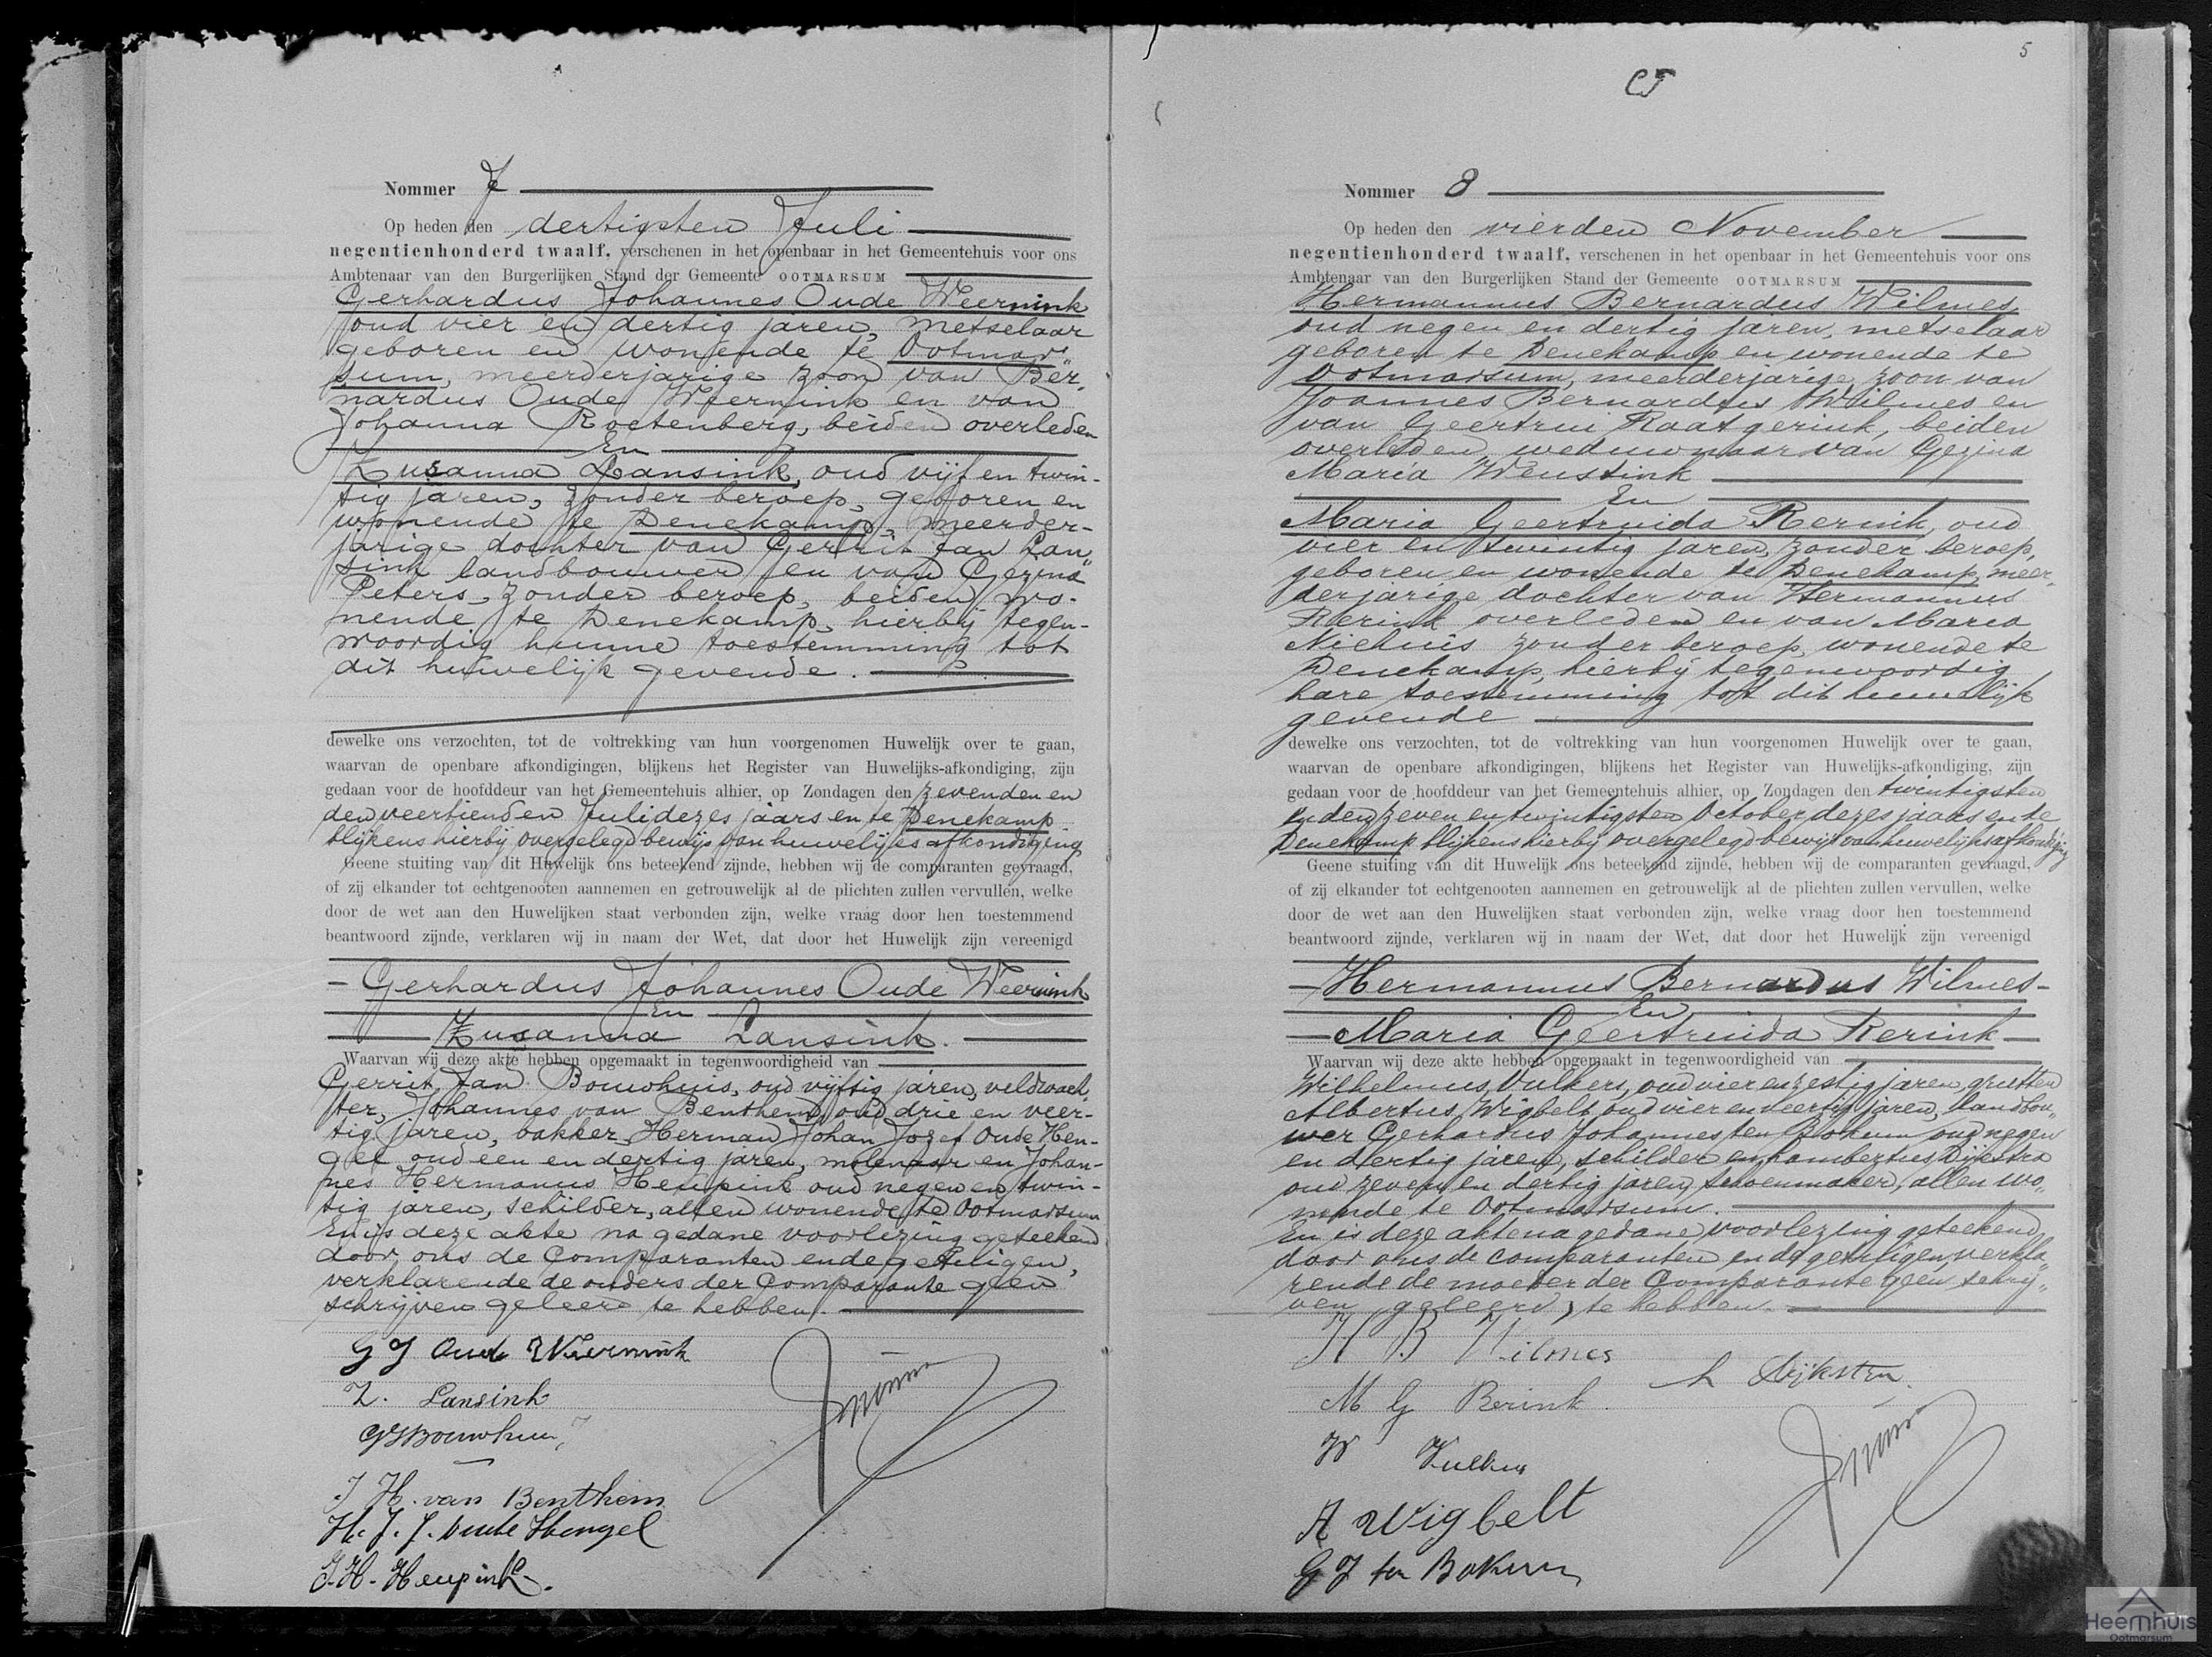 Nommer 7
Op heden den dertigsten Juli
negentienhonderd twaalf, verschenen in het openbaar in het Gemeentehuis voor ons
Ambtenaar van den Burgerlijken Stand der Gemeente OOTMARSUM
Gerhardus Johannes Oude Weernink
oud vier en dertig jaren, metselaar
geboren en wonende te Ootmar„
sum, meerderjarige zoon van Ber„
nardus Oude Weernink en van
Johanna Roetenberg, beiden overleden
En
Zusanna Lansink, oud vijf en twin-
tig jaren, zonder beroep, geboren en
wonende te Denekamp, meerder-
jarige dochter van Gerrit Jan Lan„
sink landbouwer en van Gezina
Peters, zonder beroep, beiden wo-
nende te Denekamp, hierbij tegen-
woordig hunne toestemming tot
dit huwelijk gevende.
dewelke ons verzochten, tot de voltrekking van hun voorgenomen Huwelijk over te gaan,
waarvan de openbare afkondigingen, blijkens het Register van Huwelijks-afkondiging, zijn
gedaan voor de hoofddeur van het Gemeentehuis alhier, op Zondagen den zevenden en
den veertienden Juli dezes jaars en te Denekamp
blijkens hierbij overgelegd bewijs van huwelijksafkondiging
Geene stuiting van dit Huwelijk ons beteekend zijnde, hebben wij de comparanten gevraagd,
of zij elkander tot echtgenooten aannemen en getrouwelijk al de plichten zullen vervullen, welke
door de wet aan den Huwelijken staat verbonden zijn, welke vraag door hen toestemmend
beantwoord zijnde, verklaren wij in naam der Wet, dat door het Huwelijk zijn vereenigd
Gerhardus Johannes Oude Weernink
En
Zusanna Lansink.
Waarvan wij deze akte hebben opgemaakt in tegenwoordigheid van
Gerrit Jan Bouwhuis, oud vijftig jaren, veldwach„
ter, Johannes van Benthem, oud drie en veer-
tig jaren, bakker, Herman Johan Jozef Oude Hen-
gel oud een en dertig jaren, molenaar en Johan-
nes Hermanus Heupink oud negen en twin-
tig jaren, schilder, allen wonende te Ootmarsum
En is deze akte na gedane voorlezing geteekend
door ons de Comparanten en de getuigen,
verklarende de ouders der Comparante geen
schrijven geleerd te hebben.
G J Oude Weernink
Z. Lansink
GJ Bouwhuis
J H. van Benthem
H. J. J. Oude Hengel
J. H. Heupink.
5
Nommer 8
Op heden den vierden November
negentienhonderd twaalf, verschenen in het openbaar in het Gemeentehuis voor ons
Ambtenaar van den Burgerlijken Stand der Gemeente OOTMARSUM
Hermannus Bernardus Wilmes,
oud negen en dertig jaren, metselaar
geboren te Denekamp en wonende te
Ootmarsum, meerderjarige zoon van
Joannes Bernardus Wilmes en
van Geertrui Raatgerink, beiden
overleden, weduwnaar van Gezina
Maria Weustink
En
Maria Geertruida Rerink, oud
vier en twintig jaren, zonder beroep,
geboren en wonende te Denekamp, meer„
derjarige dochter van Hermannus
Rerink overleden en van Maria
Niehuis zonder beroep, wonende te
Denekamp, hierbij tegenwoordig
hare toestemming tot dit huwelijk
gevende
dewelke ons verzochten, tot de voltrekking van hun voorgenomen Huwelijk over te gaan,
waarvan de openbare afkondigingen, blijkens het Register van Huwelijks-afkondiging, zijn
gedaan voor de hoofddeur van het Gemeentehuis alhier, op Zondagen den twintigsten
en den zeven en twintigsten October dezes jaars en te
Denekamp blijkens hierbij overgelegd bewijs van huwelijksafkondiging
Geene stuiting van dit Huwelijk ons beteekend zijnde, hebben wij de comparanten gevraagd,
of zij elkander tot echtgenooten aannemen en getrouwelijk al de plichten zullen vervullen, welke
door de wet aan den Huwelijken staat verbonden zijn, welke vraag door hen toestemmend
beantwoord zijnde, verklaren wij in naam der Wet, dat door het Huwelijk zijn vereenigd
Hermannus Bernardus Wilmes
En
Maria Geertruida Rerink
Waarvan wij deze akte hebben opgemaakt in tegenwoordigheid van
Wilhelmus Vulkers, oud vier en zestig jaren,
Albertus Wigbelt oud vier en veertig jaren, landbou„
wer Gerhardus Johannes ten Bokum oud negen
en dertig jaren, schilder en Lambertus Dijkstra
oud zeven en dertig jaren, schoenmaker, allen wo„
nende te Ootmarsum.
En is deze akte na gedane voorlezing geteekend
door ons de comparanten en de getuigen, verkla„
rende de moeder der Comparante geen schrij„
ven geleerd te hebben.
H B Wilmes
L Dijkstra.
M G Rerink.
W Vulkers
A Wigbelt
G J ten Bokum
Heemhuis
Ootmarsum